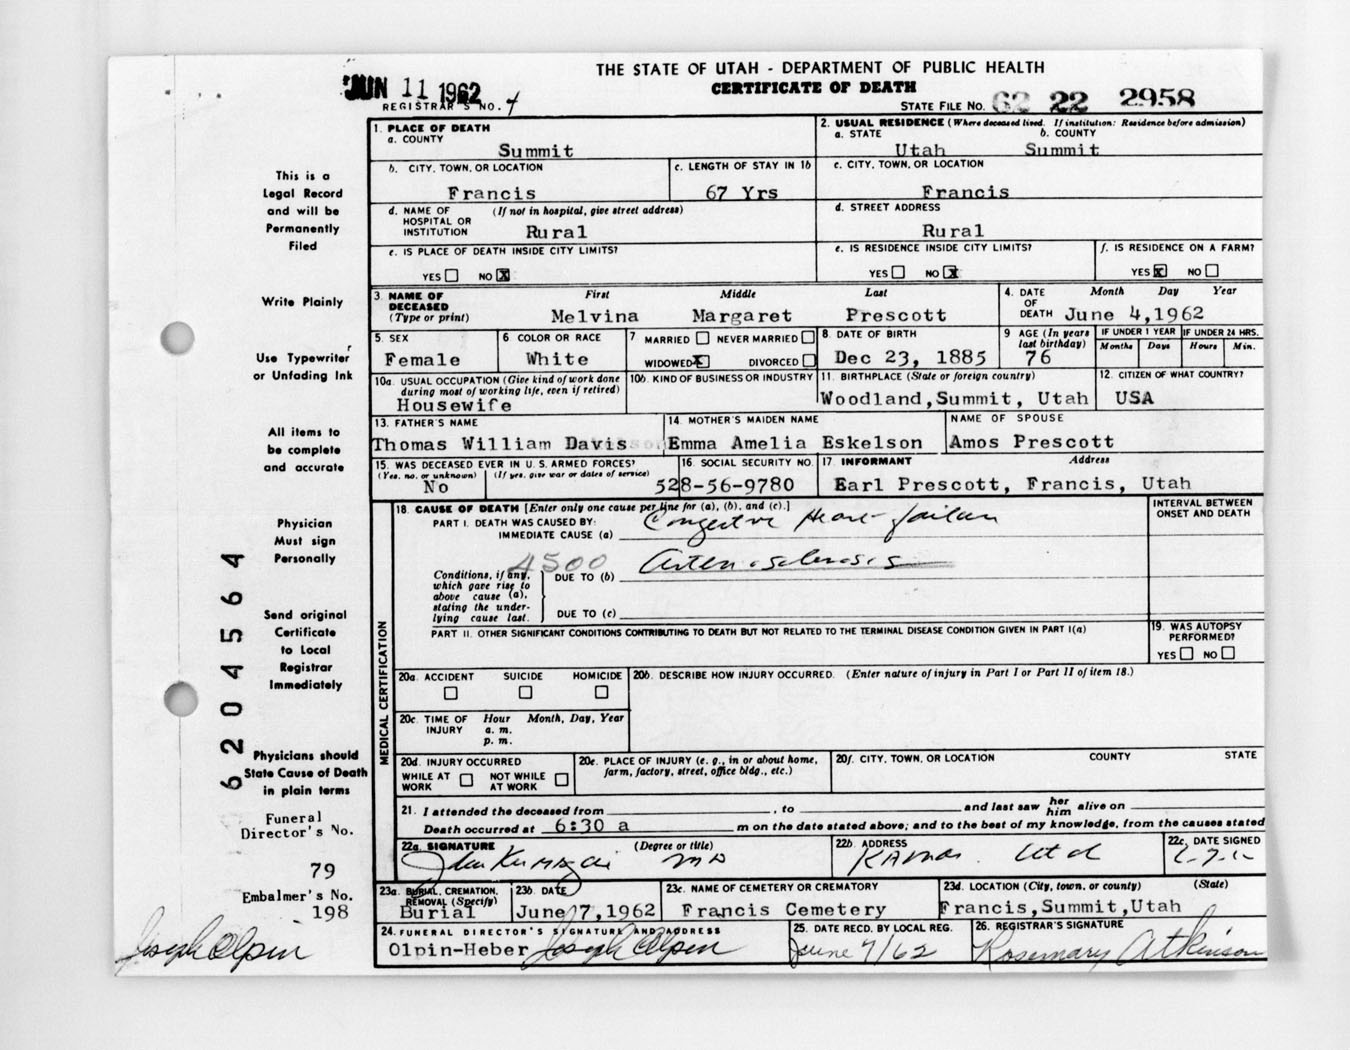 THE STATE OF UTAH - DEPARTMENT OF PUBLIC HEALTH
JUN 11 1962
CERTIFICATE OF DEATH
REGISTRAR'S NO. 4
STATE FILE NO. 62 22 2958
1. PLACE OF DEATH
a. COUNTY
Summit
2. USUAL RESIDENCE (Where deceased lived. If institution: Residence before admission)
a. STATE b. COUNTY
Utah Summit
b. CITY, TOWN, OR LOCATION
Francis
c. LENGTH OF STAY IN 1b
67 Yrs
c. CITY, TOWN, OR LOCATION
Francis
d. NAME OF HOSPITAL OR INSTITUTION (If not in hospital, give street address)
Rural
d. STREET ADDRESS
Rural
e. IS PLACE OF DEATH INSIDE CITY LIMITS?
YES NO X
e. IS RESIDENCE INSIDE CITY LIMITS?
YES NO X
f. IS RESIDENCE ON A FARM?
YES X NO
3. NAME OF DECEASED (Type or print)
First Middle Last
Melvina Margaret Prescott
4. DATE OF DEATH Month Day Year
June 4,1962
5. SEX
Female
6 COLOR OR RACE
White
7 MARRIED NEVER MARRIED
WIDOWED X DIVORCED
8 DATE OF BIRTH
Dec 23, 1885
9 AGE (In years last birthday)
76
IF UNDER 1 YEAR IF UNDER 24 HRS.
Months Days Hours Min.
10a. USUAL OCCUPATION (Give kind of work done during most of working life, even if retired)
Housewife
10b. KIND OF BUSINESS OR INDUSTRY
11. BIRTHPLACE (State or foreign country)
Woodland,Summit, Utah
12. CITIZEN OF WHAT COUNTRY?
USA
13. FATHER'S NAME
Thomas William Davis
14. MOTHER'S MAIDEN NAME
Emma Amelia Eskelson
NAME OF SPOUSE
Amos Prescott
15. WAS DECEASED EVER IN U.S. ARMED FORCES?
(Yes, no, or unknown) (If yes, give war or dates of service)
No
16. SOCIAL SECURITY NO.
528-56-9780
17. INFORMANT Address
Earl Prescott, Francis, Utah
18. CAUSE OF DEATH [Enter only one cause per line for (a), (b), and (c).]
PART I. DEATH WAS CAUSED BY:
IMMEDIATE CAUSE (a) Congestive Heart failure
INTERVAL BETWEEN ONSET AND DEATH
4500
Conditions, if any, which gave rise to above cause (a), stating the underlying cause last.
DUE TO (b) Arteriosclerosis
DUE TO (c)
PART II. OTHER SIGNIFICANT CONDITIONS CONTRIBUTING TO DEATH BUT NOT RELATED TO THE TERMINAL DISEASE CONDITION GIVEN IN PART I(a)
19. WAS AUTOPSY PERFORMED?
YES NO
MEDICAL CERTIFICATION
20a. ACCIDENT SUICIDE HOMICIDE
20b. DESCRIBE HOW INJURY OCCURRED. (Enter nature of injury in Part I or Part II of item 18.)
20c. TIME OF INJURY Hour Month, Day, Year
a. m.
p. m.
20d. INJURY OCCURRED
WHILE AT WORK NOT WHILE AT WORK
20e. PLACE OF INJURY (e. g., in or about home, farm, factory, street, office bldg., etc.)
20f. CITY, TOWN, OR LOCATION COUNTY STATE
21. I attended the deceased from , to and last saw her him alive on
Death occurred at 6:30 a m on the date stated above; and to the best of my knowledge, from the causes stated
22a. SIGNATURE (Degree or title)
MD
22b. ADDRESS
Kamas. Utah
22c. DATE SIGNED
23a. BURIAL, CREMATION, REMOVAL (Specify)
Burial
23b. DATE
June 7,1962
23c. NAME OF CEMETERY OR CREMATORY
Francis Cemetery
23d. LOCATION (City, town, or county) (State)
Francis,Summit,Utah
24. FUNERAL DIRECTOR'S SIGNATURE AND ADDRESS
Olpin-Heber Joseph Olpin
25. DATE RECD. BY LOCAL REG.
June 7/62
26. REGISTRAR'S SIGNATURE
Rosemary Atkinson
This is a
Legal Record
and will be
Permanently
Filed
Write Plainly
Use Typewriter
or Unfading Ink
All items to
be complete
and accurate
Physician
Must sign
Personally
Send original
Certificate
to Local
Registrar
Immediately
Physicians should
State Cause of Death
in plain terms
Funeral
Director's No.
79
Embalmer's No.
198
Joseph Olpin
6204564